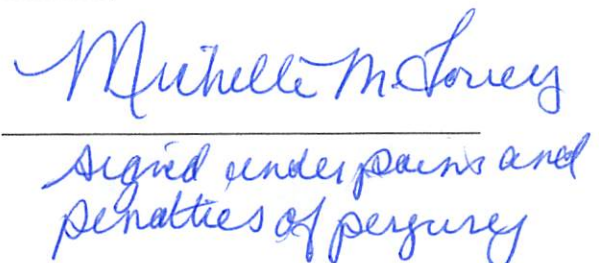 Michelle M. Torrey
signed under pains and
penalties of pergurey